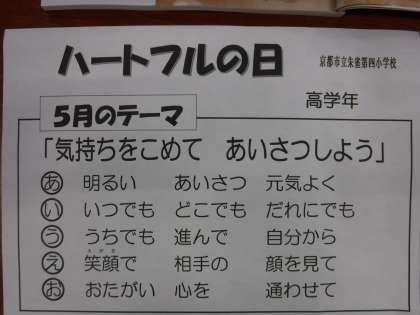 ハートフルの日
京都市立朱雀第四小学校
高学年
5月のテーマ
「気持ちをこめて　あいさつしよう」
あ　明るい　あいさつ　元気よく
い　いつでも　どこでも　だれにでも
う　うちでも　進んで　自分から
え　笑顔で　相手の　顔を見て
お　おたがい　心を　通わせて